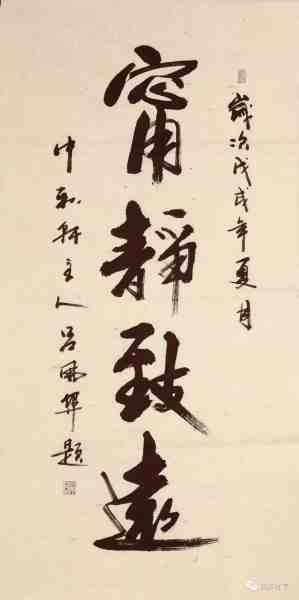 歲次戊戌年夏月
甯靜致遠
中和軒主人呂題